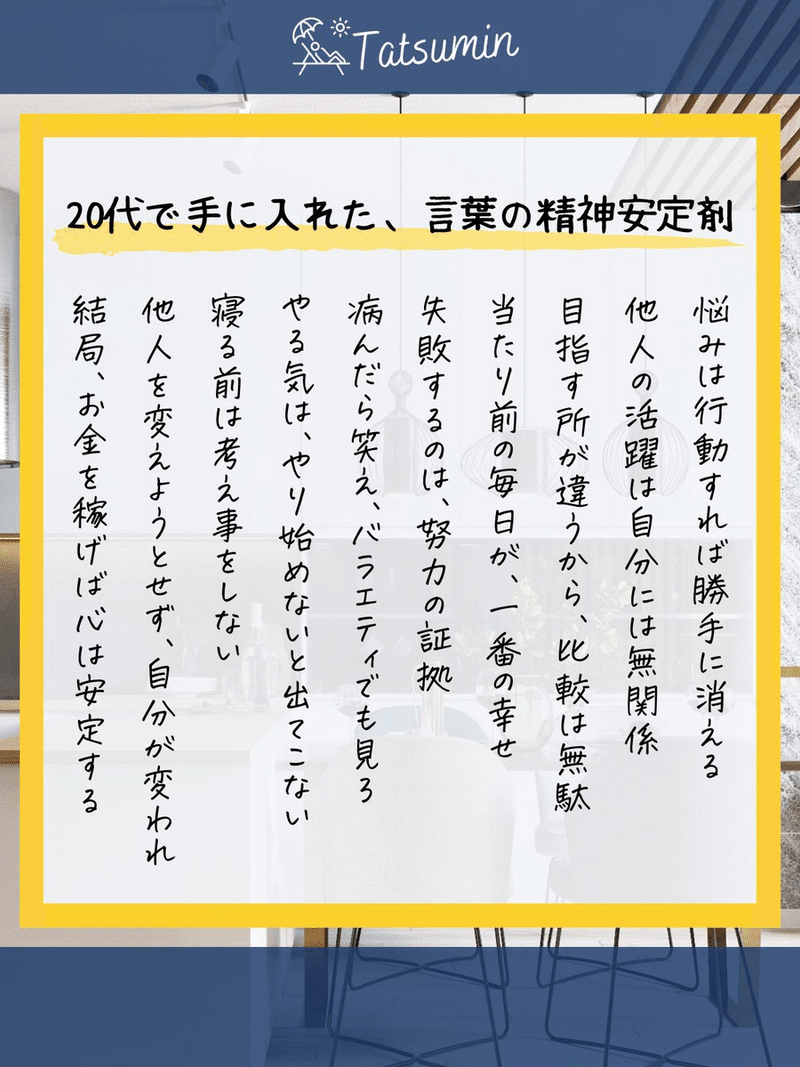 Tatsumin
20代で手に入れた、言葉の精神安定剤
悩みは行動すれば勝手に消える
他人の活躍は自分には無関係
目指す所が違うから、比較は無駄
当たり前の毎日が、一番の幸せ
失敗するのは、努力の証拠
病んだら笑え、バラエティでも見ろ
やる気は、やり始めないと出てこない
寝る前は考え事をしない
他人を変えようとせず、自分が変われ
結局、お金を稼げば心は安定する